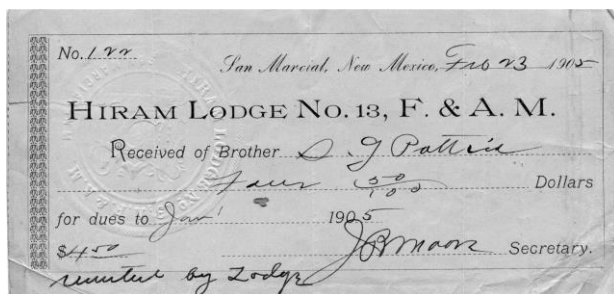 No. 122
San Marcial, New Mexico, Feb 23 1905
HIRAM LODGE NO. 13, F. & A. M.
Received of Brother S. J. Pattie
Four 50/100 Dollars
for dues to Jan' 1905
$4.50 J B Moore Secretary.
remitted by Lodge
HIRAM LODGE NO. 13